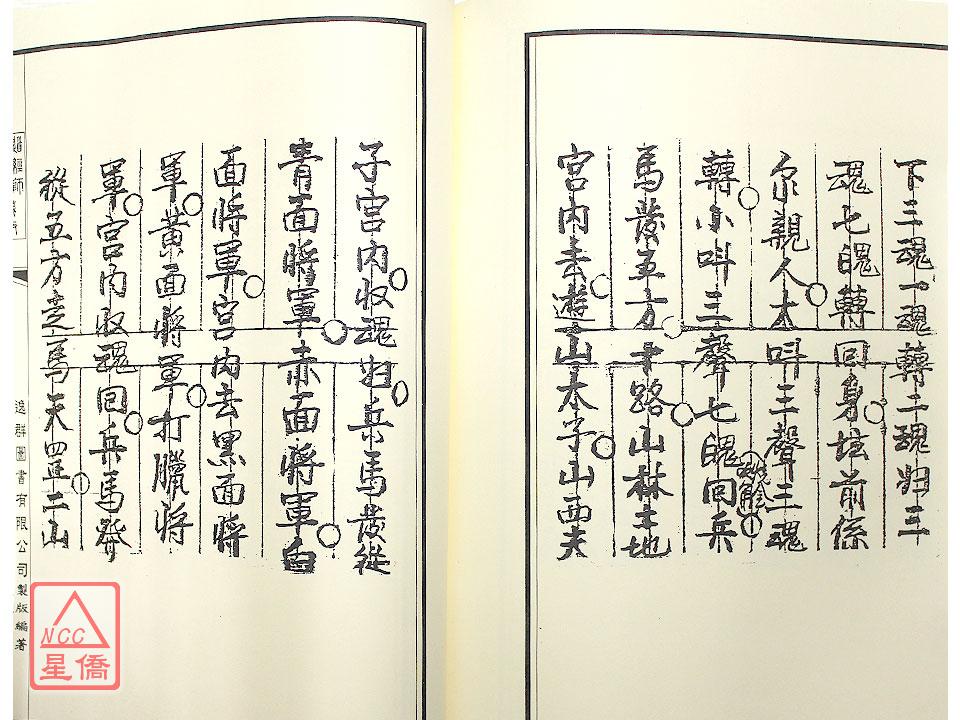 下三魂一魂轉二魂归三
魂七魄轉回身坛前係
尔親人大叫三聲三魂
轉小叫三聲七魄回兵
馬發五方十路山林土地
宮内去遊山太子山西夫
子宫内收魂归兵馬發從
青面將軍赤面將軍白
面將軍宫内去黑面將
軍黃面將軍打臘將
軍宫内收魂回兵馬發
從五方走馬天罡二山
逸群圖書有限公司製版編著
NCC
星僑